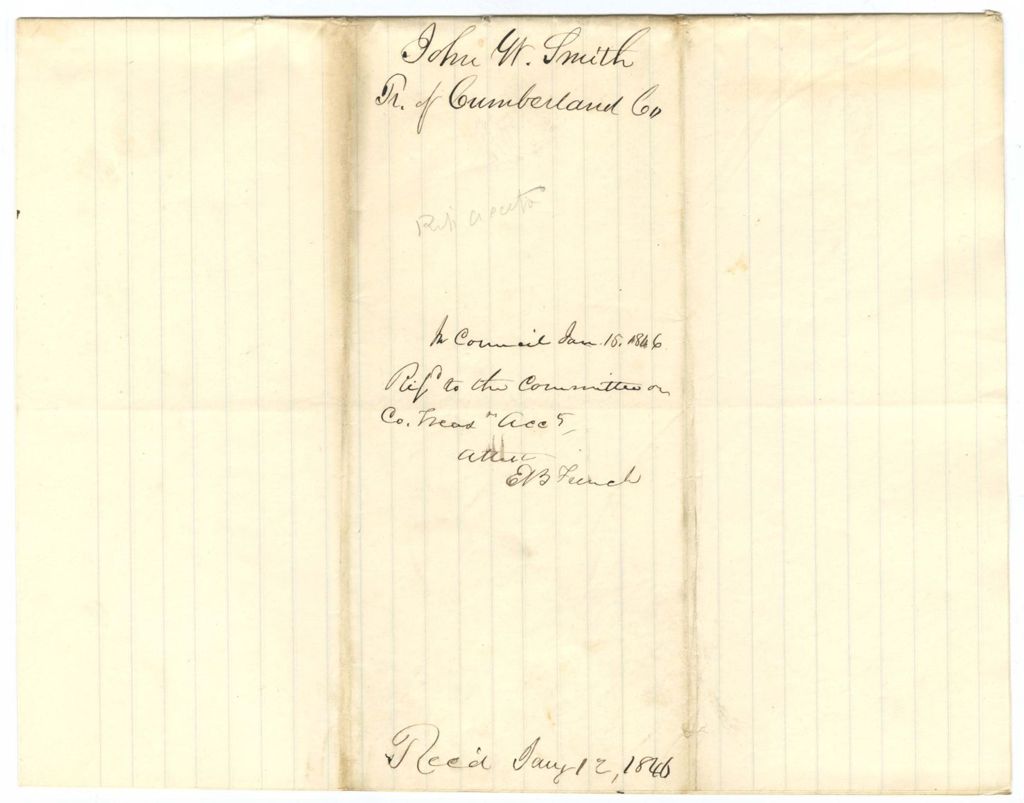 John W. Smith
Tr. of Cumberland Co
In Council Jan. 15, 1846.
Ref.d to the Committee on
Co. Treas.rs Accts,
Attest
EB French
Rec'd Jany 12, 1846